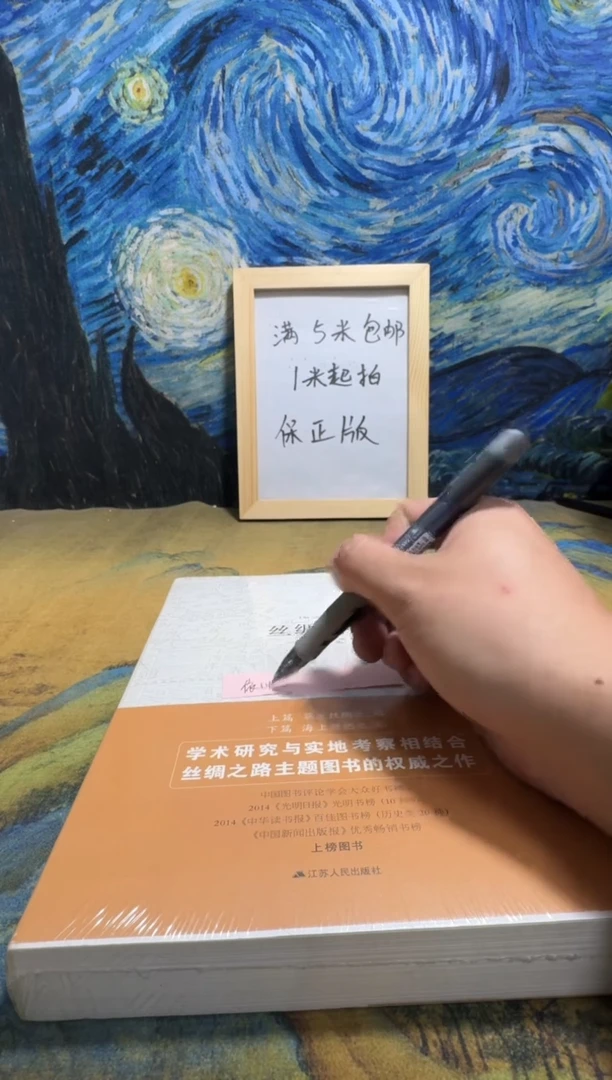 满5米包邮
1米起拍
保正版
丝绸
上篇
下篇 海上
学术研究与实地考察相结合
丝绸之路主题图书的权威之作
中国图书评论学会大众好书榜
2014《光明日报》光明书榜
2014《中华读书报》百佳图书榜（历史类20种）
《中国新闻出版报》优秀畅销书榜
上榜图书
江苏人民出版社